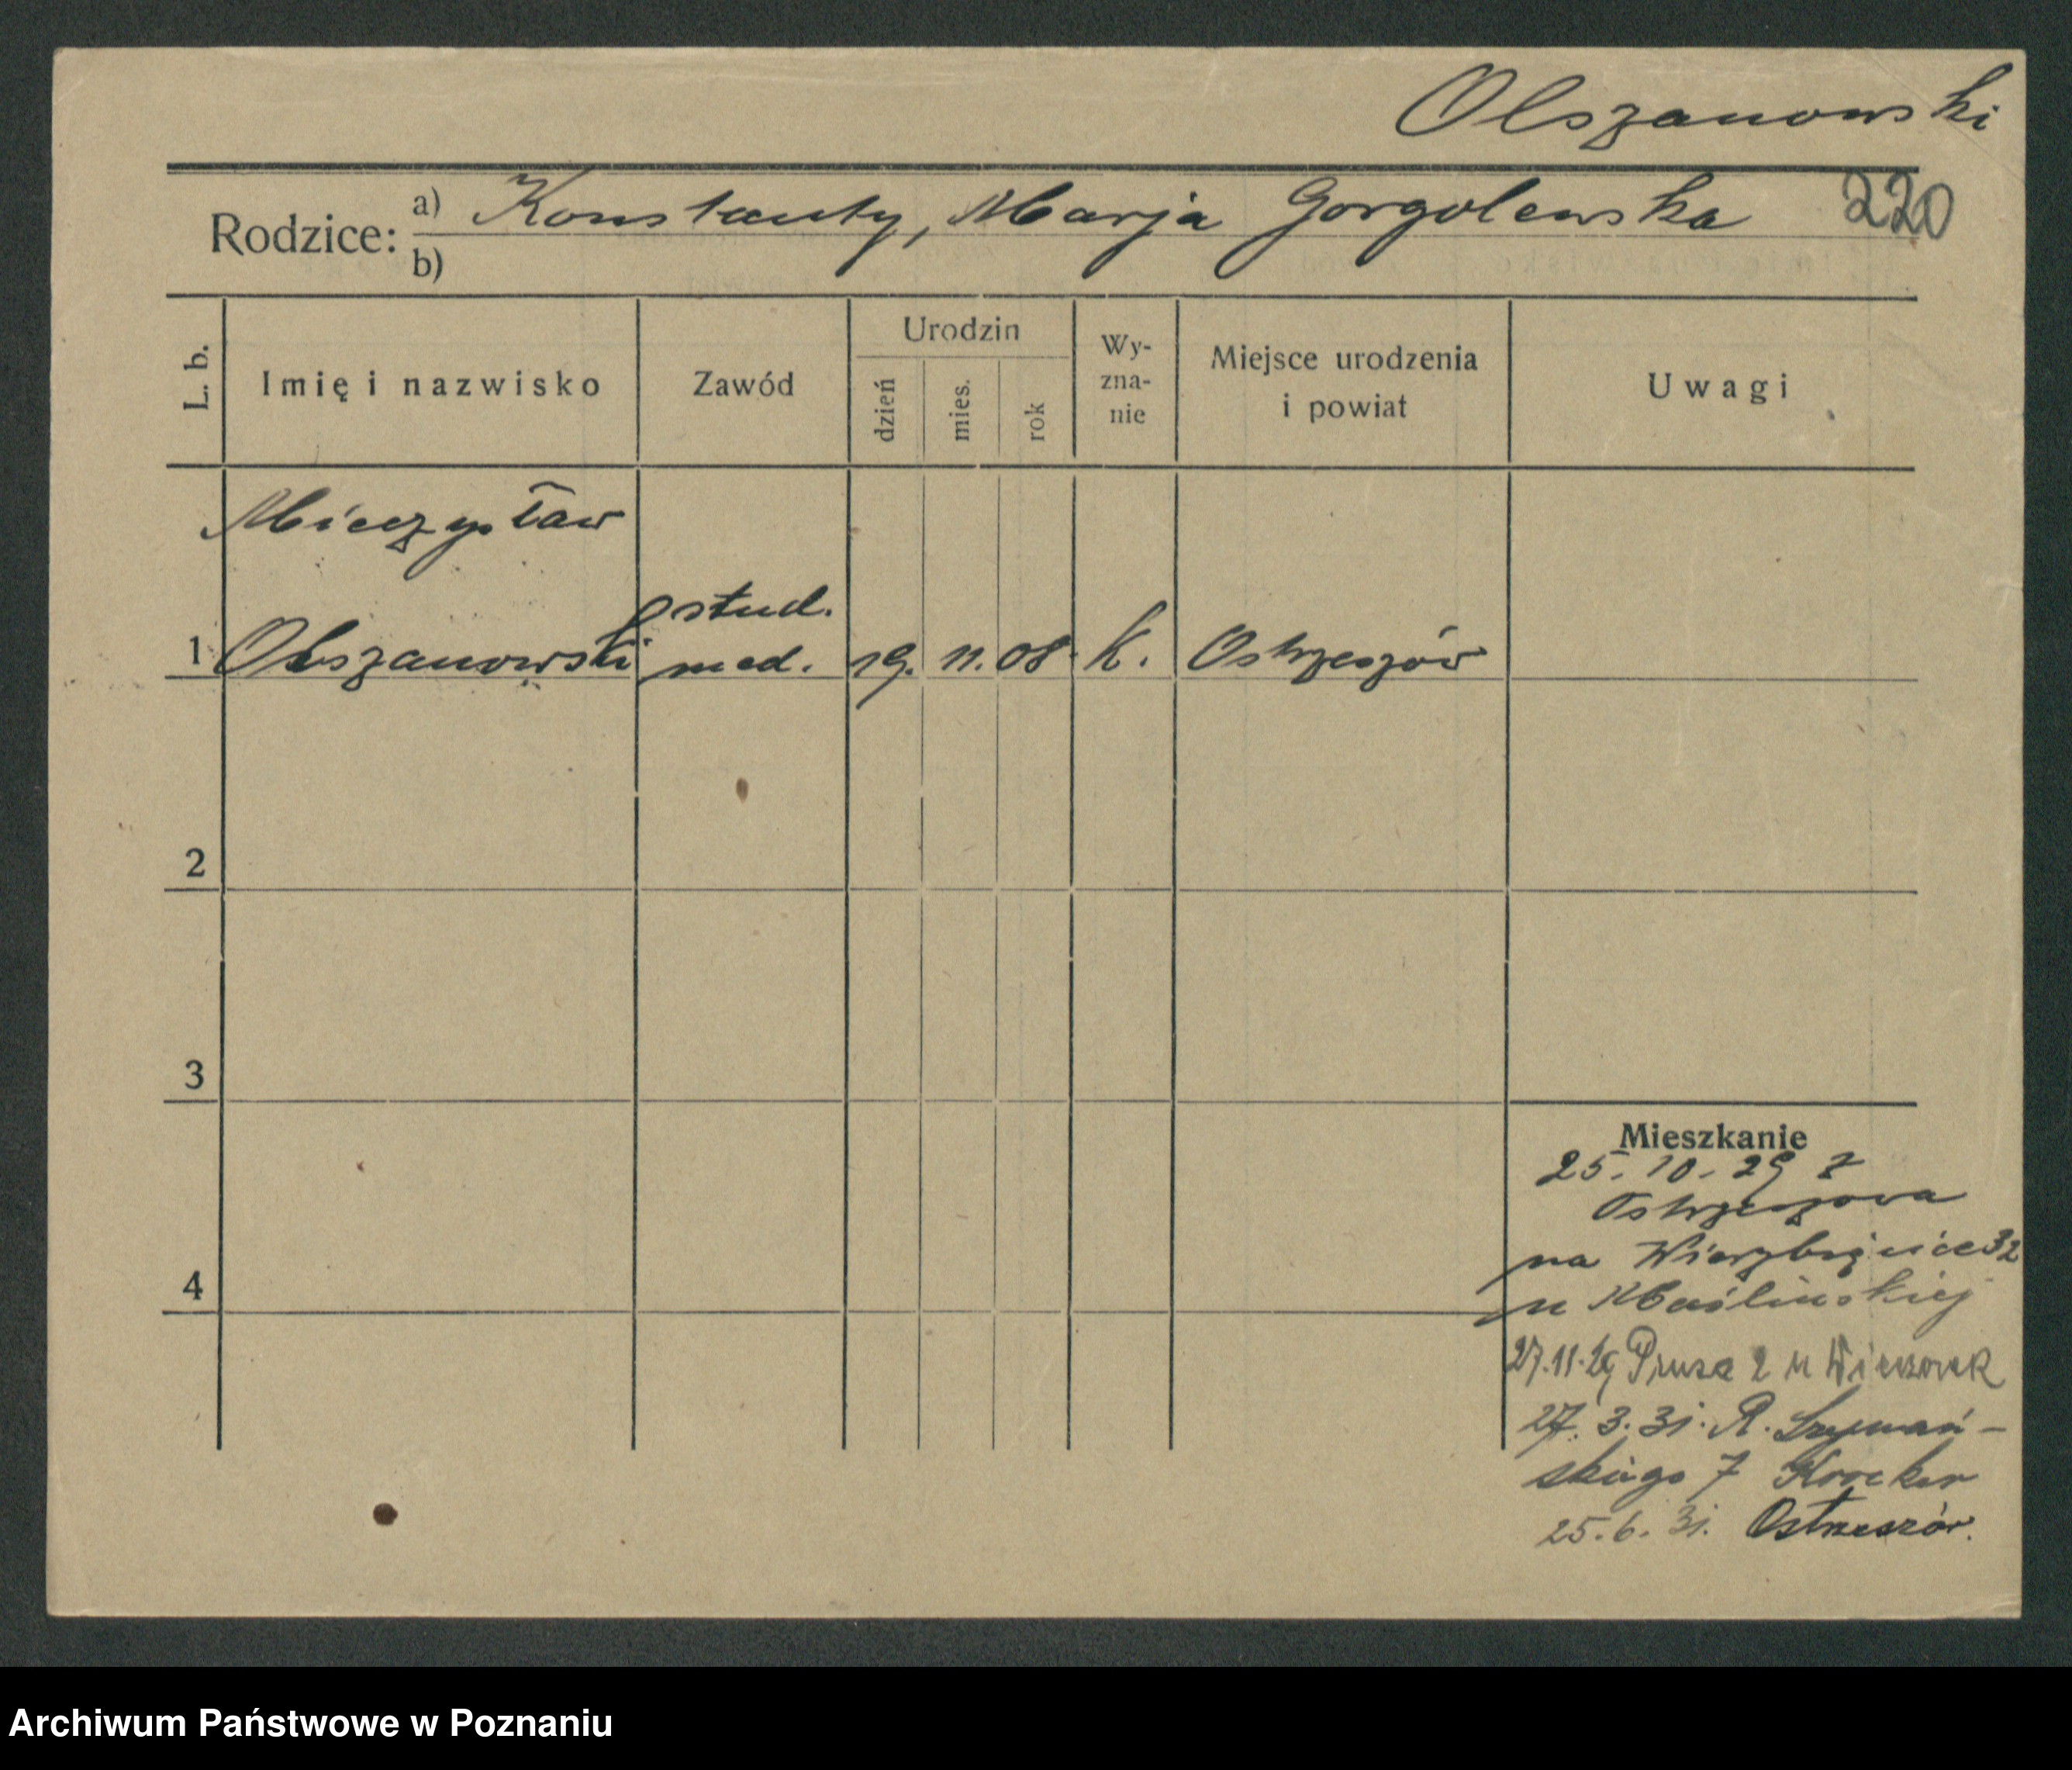 Olszanowski
Rodzice: a) Konstanty, Marja Gorgolewska 220
b)
L. b.
Imię i nazwisko
Zawód
Urodzin
dzień
mies.
rok
Wy-
zna-
nie
Miejsce urodzenia
i powiat
Uwagi
Mieczysław
stud.
1 Olszanowski med. 19. 11. 08. k. Ostrzeszów
2
3
4
Mieszkanie
25. 10. 29 z
Ostrzeszowa
na Wierzbięcice 32
u Maślińskiej
27.11.29 Prusa 2 u Wieczorek
27. 3. 31. R. Szymań-
skiego 7
25. 6. 31. Ostrzeszów.
Archiwum Państwowe w Poznaniu